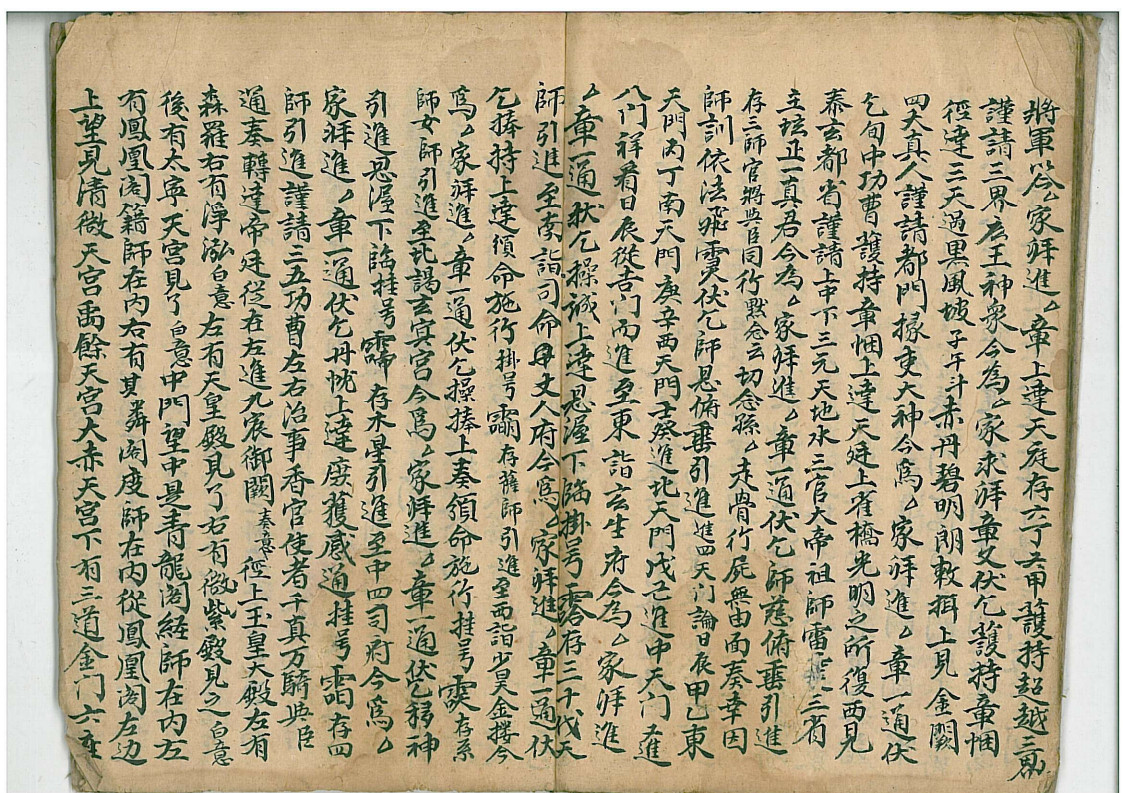 將軍以今厶家拜進厶章上達天庭存六丁六甲護持超越三界
謹請三界亷王神眾今為厶家求拜章文伏乞護持章悃
徑達三天過黑風坡子午斗赤丹碧明朗敕揖上見金闕
四大真人謹請都門掾吏大神今爲厶家拜進厶章一通伏
乞旬中功曹護持章悃上達天廷上雀橋光明之所復西見
泰玄都省謹請上中下三元天地水三官大帝祖師雷三省
主玹正一真君今為厶家拜進厶章一通伏乞師慈俯垂引進
存三師官將與臣同行默念云切念孫厶走骨行屍無由面奏幸因
師訓依法飛雲伏乞師恩俯垂引進進四天门論日辰甲乙東
天門丙丁南天門庚辛西天門壬癸進北天門戊己進中天门進
八門祥看日辰從吉门而進至東詣玄生府今為厶家拜進
厶章一通狀乞操誠上達恩渥下臨掛号存三十代天
師引進至南詣司命丈人府今爲厶家拜進厶章一通伏
乞捧持上達須命施行掛号存薩師引進至西詣少昊金樓今
爲厶家拜進厶章一通伏乞操捧上奏須命施行挂号存系
師女師引進至北謁玄冥宮今爲厶家拜進厶章一通伏乞移神
引進恩渥下臨挂号存水星引進至中四司府今爲厶
家拜進厶章一通伏乞丹忱上達庶獲感通挂号存四
師引進謹請三五功曹左右治事香官使者千真万騎與臣
通奏轉達帝廷從在左進九宸御闕奏意徑上玉皇大殿左有
森羅右有淨泓白意左有天皇殿見了右有微紫殿見之白意
後有太寧天宮見了白意中門望中是青龍阁経師在内左
有鳳凰阁籍師在内右有其麟阁度師在内從鳳凰阁左边
上望見清微天宮禹餘天宮大赤天宮下有三道金门六